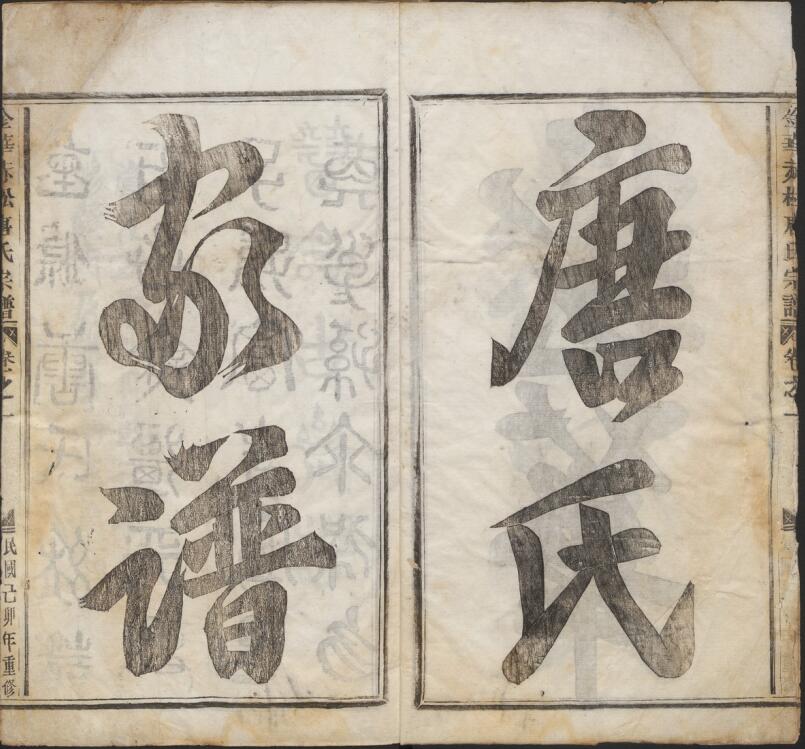 唐氏
家譜
金華赤松唐氏宗譜
卷之一
民國己卯年重修
金華赤松唐氏宗譜
卷之一